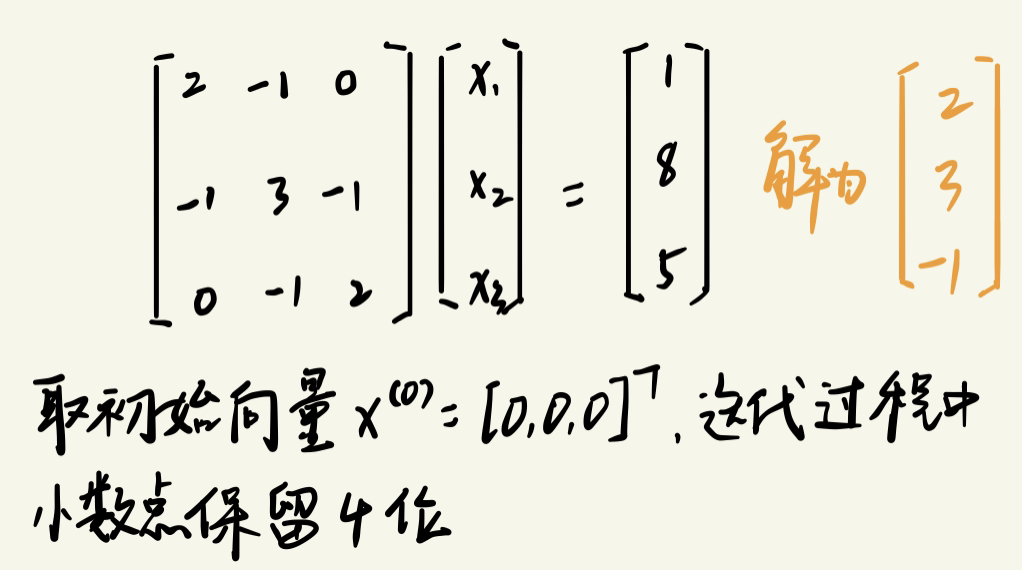 [2 -1 0; -1 3 -1; 0 -1 2] [x₁; x₂; x₃] = [1; 8; 5] 解为 [2; 3; -1]
取初始向量 x⁽⁰⁾= [0,0,0]ᵀ, 迭代过程中
小数点保留4位